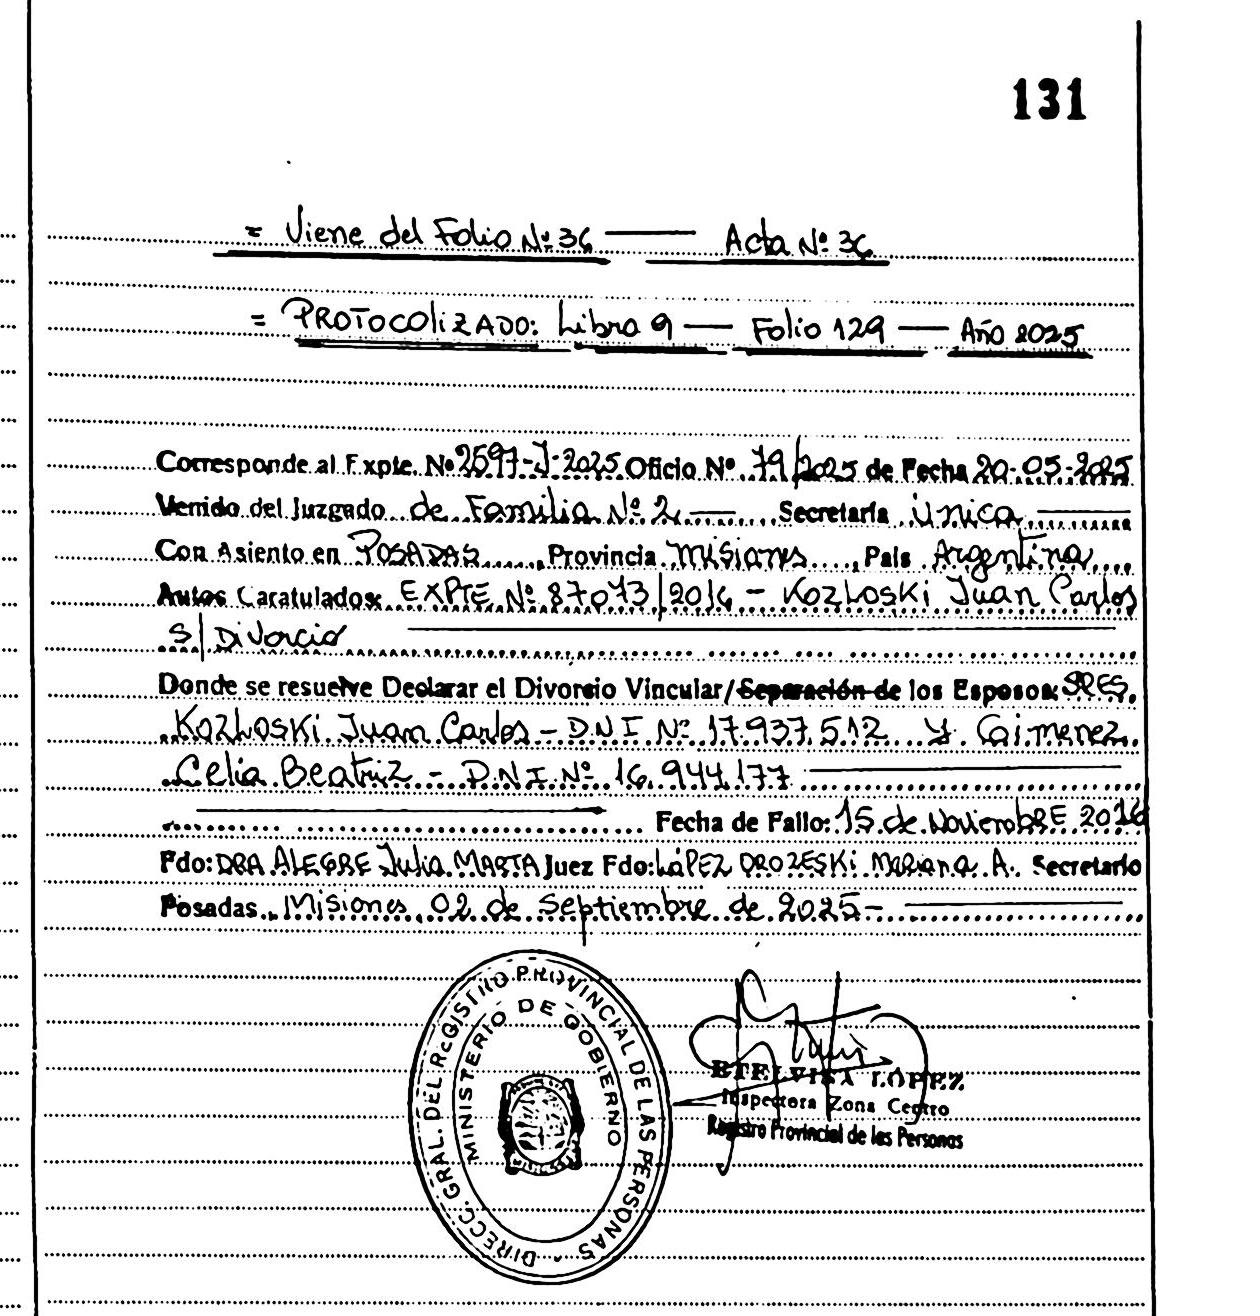 131
= Viene del Folio Nº 36 — Acta Nº 36
= PROTOCOLIZADO: Libro 9 — Folio 129 — Año 2025
Corresponde al Expte. Nº 2597-J-2025 Oficio Nº 79/2025 de Fecha 20-05-2025
Venido del Juzgado de Familia Nº 2 — Secretaría Única
Con Asiento en POSADAS, Provincia Misiones, País Argentina
Autos Caratulados: EXPTE Nº 87073/2016 - Kozloski Juan Carlos
S/ Divorcio
Donde se resuelve Declarar el Divorcio Vincular/Separación de los Esposos: SRES.
Kozloski Juan Carlos - D.N.I Nº 17.937.512 Y Gimenez
Celia Beatriz - D.N.I. Nº 16.944.177
Fecha de Fallo: 15 de Noviembre 2016
Fdo: DRA ALEGRE Julia MARTA Juez Fdo: LÓPEZ DROZESKI Mariana A. Secretario
Posadas, Misiones, 02 de Septiembre de 2025-
DIRECC. GRAL. DEL REGISTRO PROVINCIAL DE LAS PERSONAS
MINISTERIO DE GOBIERNO
ETELVINA LÓPEZ
Inspectora Zona Centro
Registro Provincial de las Personas